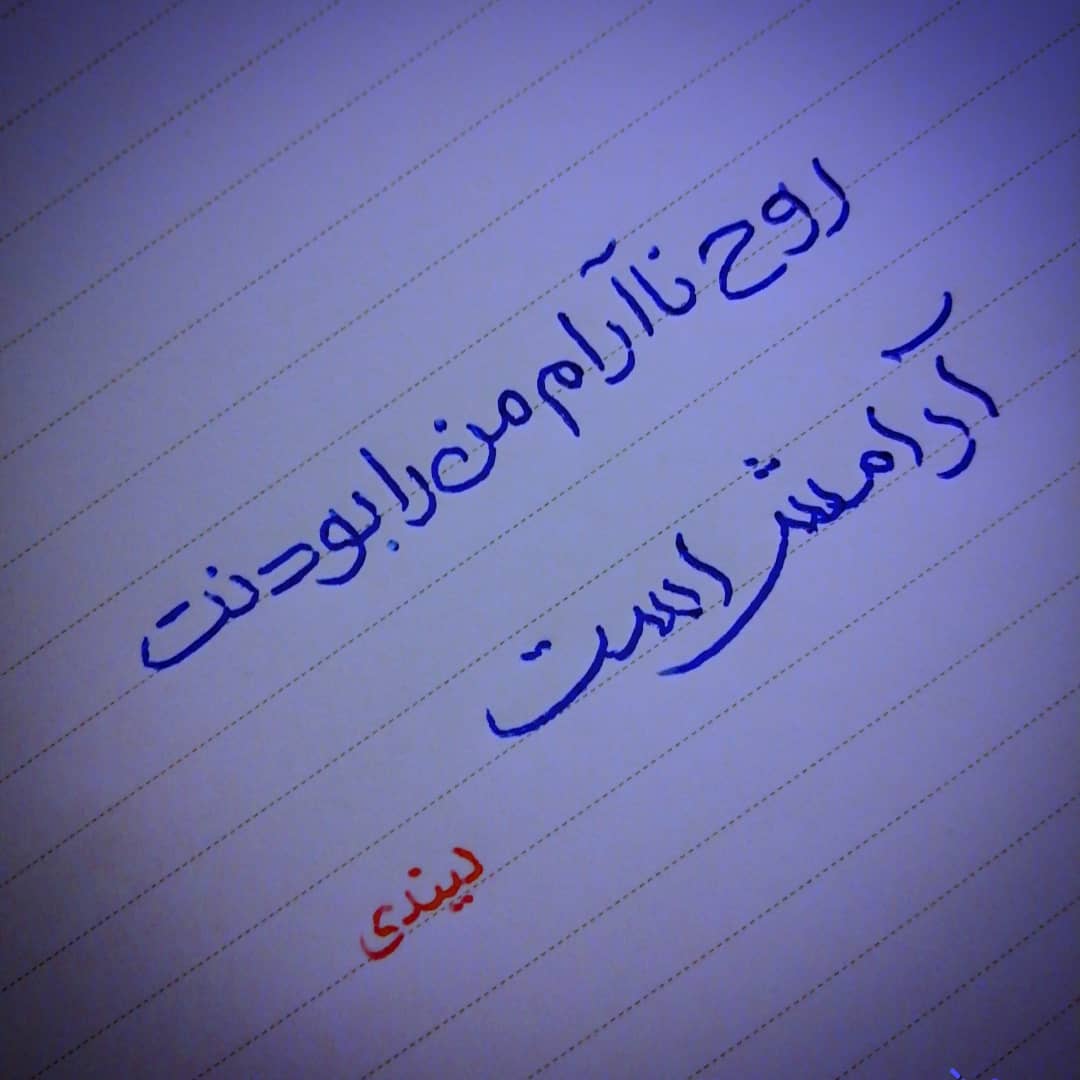 روح ناآرام من را بودنت
آرامش است
لیندی